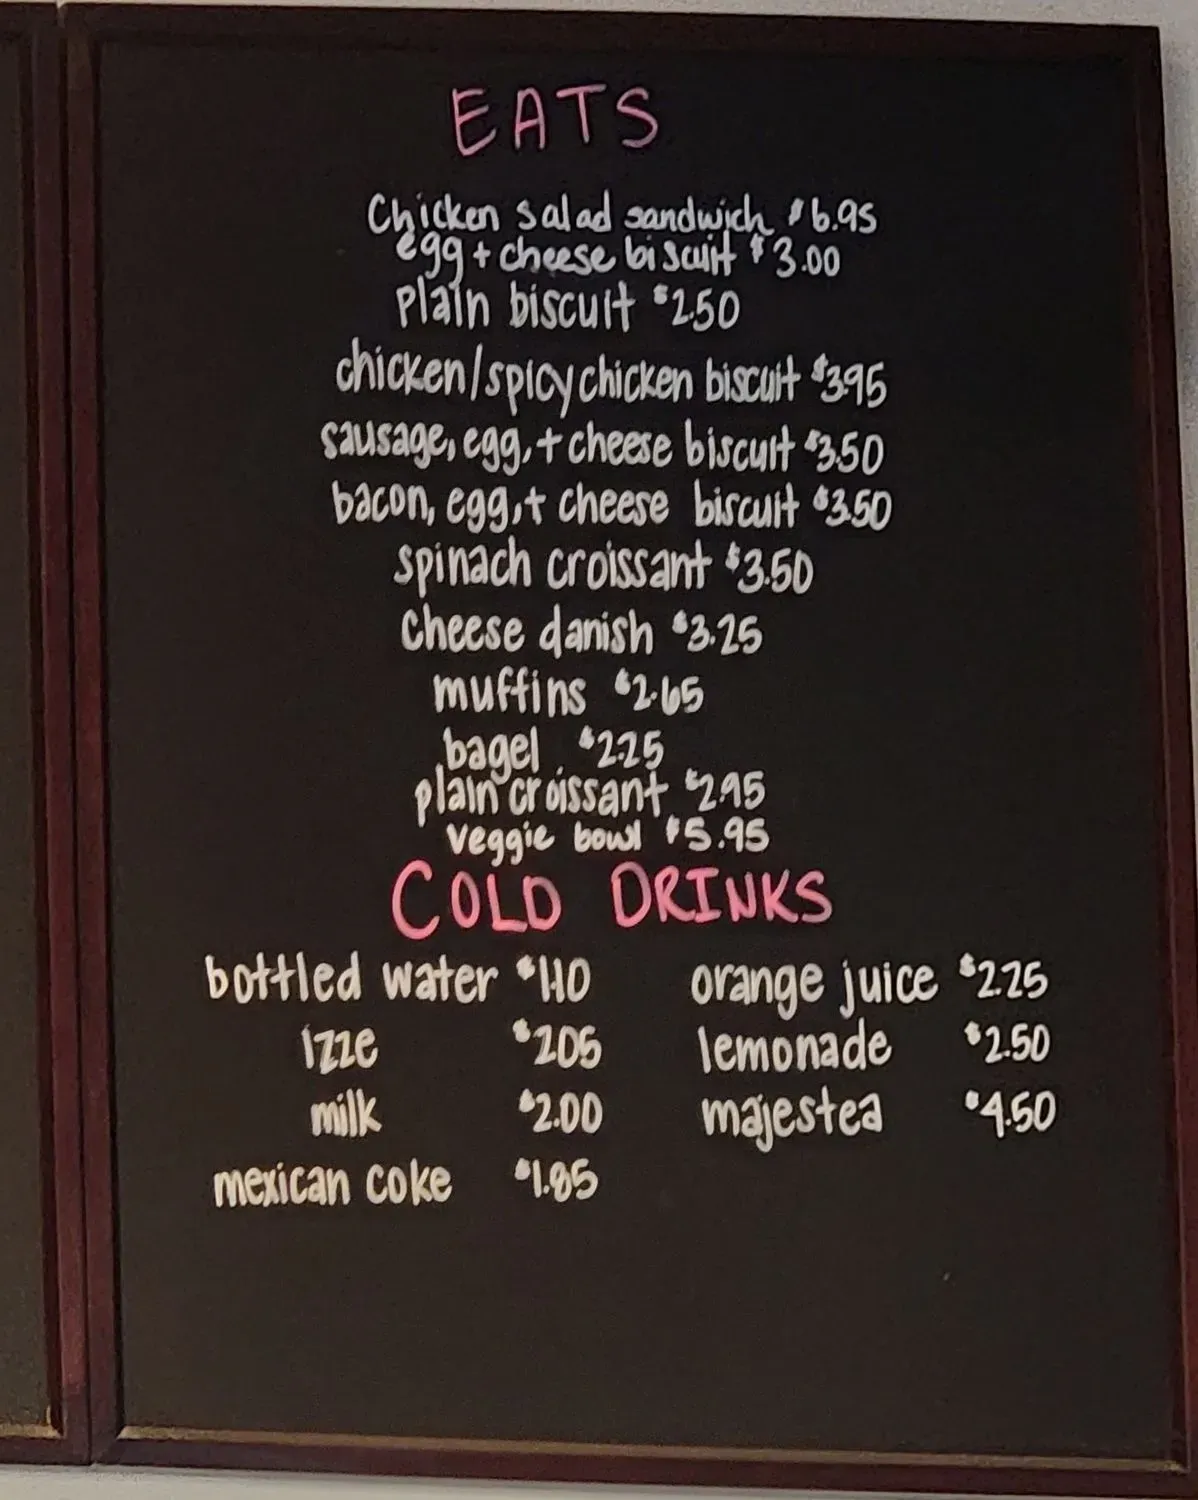 EATS
Chicken salad sandwich $6.95
egg + cheese biscuit $3.00
plain biscuit $2.50
chicken/spicy chicken biscuit $3.95
sausage, egg, + cheese biscuit $3.50
bacon, egg, + cheese biscuit $3.50
spinach croissant $3.50
Cheese danish $3.25
muffins $2.65
bagel $2.25
plain croissant $2.95
veggie bowl $5.95
COLD DRINKS
bottled water $1.10 orange juice $2.25
izze $2.05 lemonade $2.50
milk $2.00 majestea $4.50
mexican coke $1.85